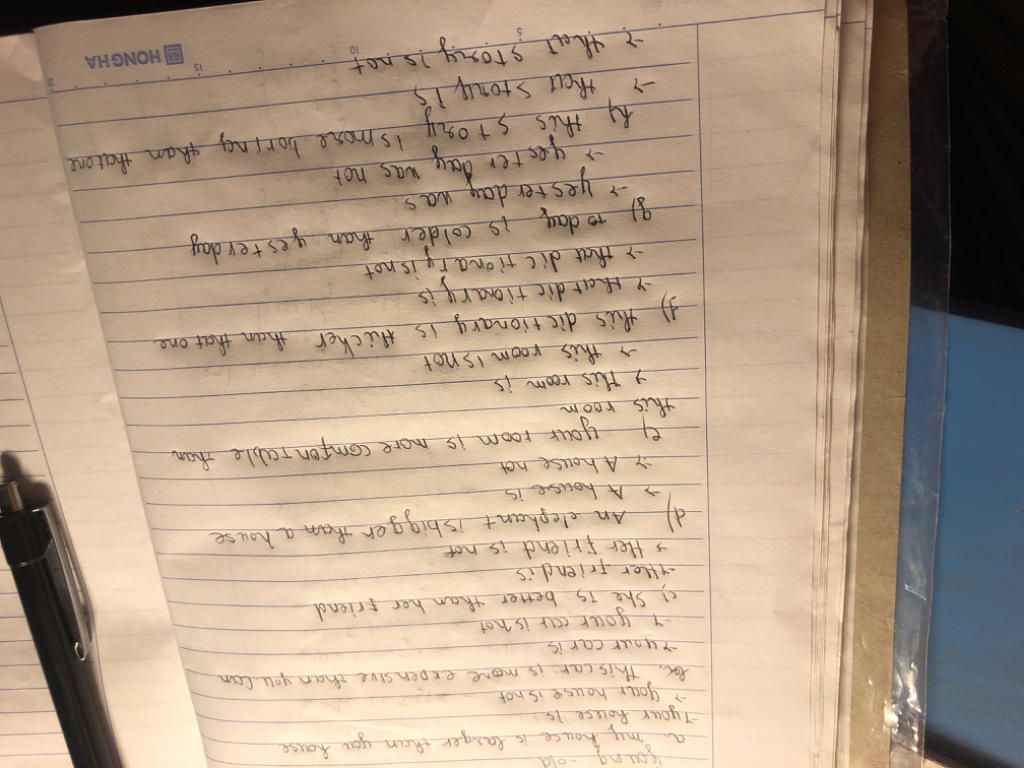 young - old
a. my house is larger than you house
→ your house is
→ your house is not
b. This car is more expensive than you can
→ your car is
→ your car is not
c) She is better than her friend
→ Her friend is
→ Her friend is not
d) An elephant is bigger than a house
→ A house is
→ A house not
e) your room is more comfontable than
this room
→ This room is
→ this room is not
f) this dictionary is thicher than that one
→ that dictionary is
→ that dictionary is not
g) Today is colder than yesterday
→ yesterday was
→ yesterday was not
h) this story is more boring than that one
→ that story is
→ that story is not
5 10 15
HONG HA